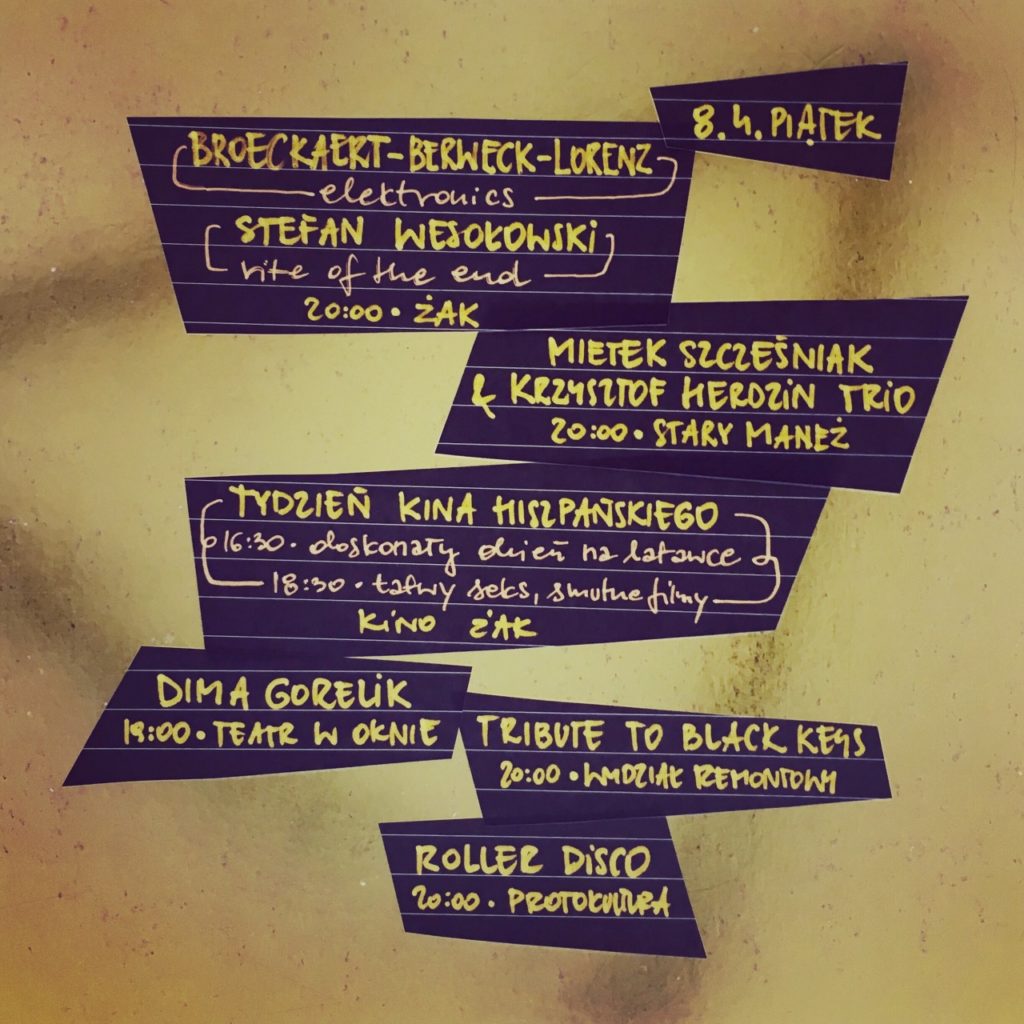 8.4. PIĄTEK
BROECKAERT-BERWECK-LORENZ
elektronics
STEFAN WESOŁOWSKI
rite of the end
20:00 • ŻAK
MIETEK SZCZEŚNIAK
& KRZYSZTOF HERDZIN TRIO
20:00 • STARY MANEŻ
TYDZIEŃ KINA HISZPAŃSKIEGO
16:30 • doskonały dzień na latawce
18:30 • łatwy seks, smutne filmy
KINO ŻAK
DIMA GORELIK
19:00 • TEATR W OKNIE
TRIBUTE TO BLACK KEYS
20:00 • WYDZIAŁ REMONTOWY
ROLLER DISCO
20:00 • PROTOKULTURA